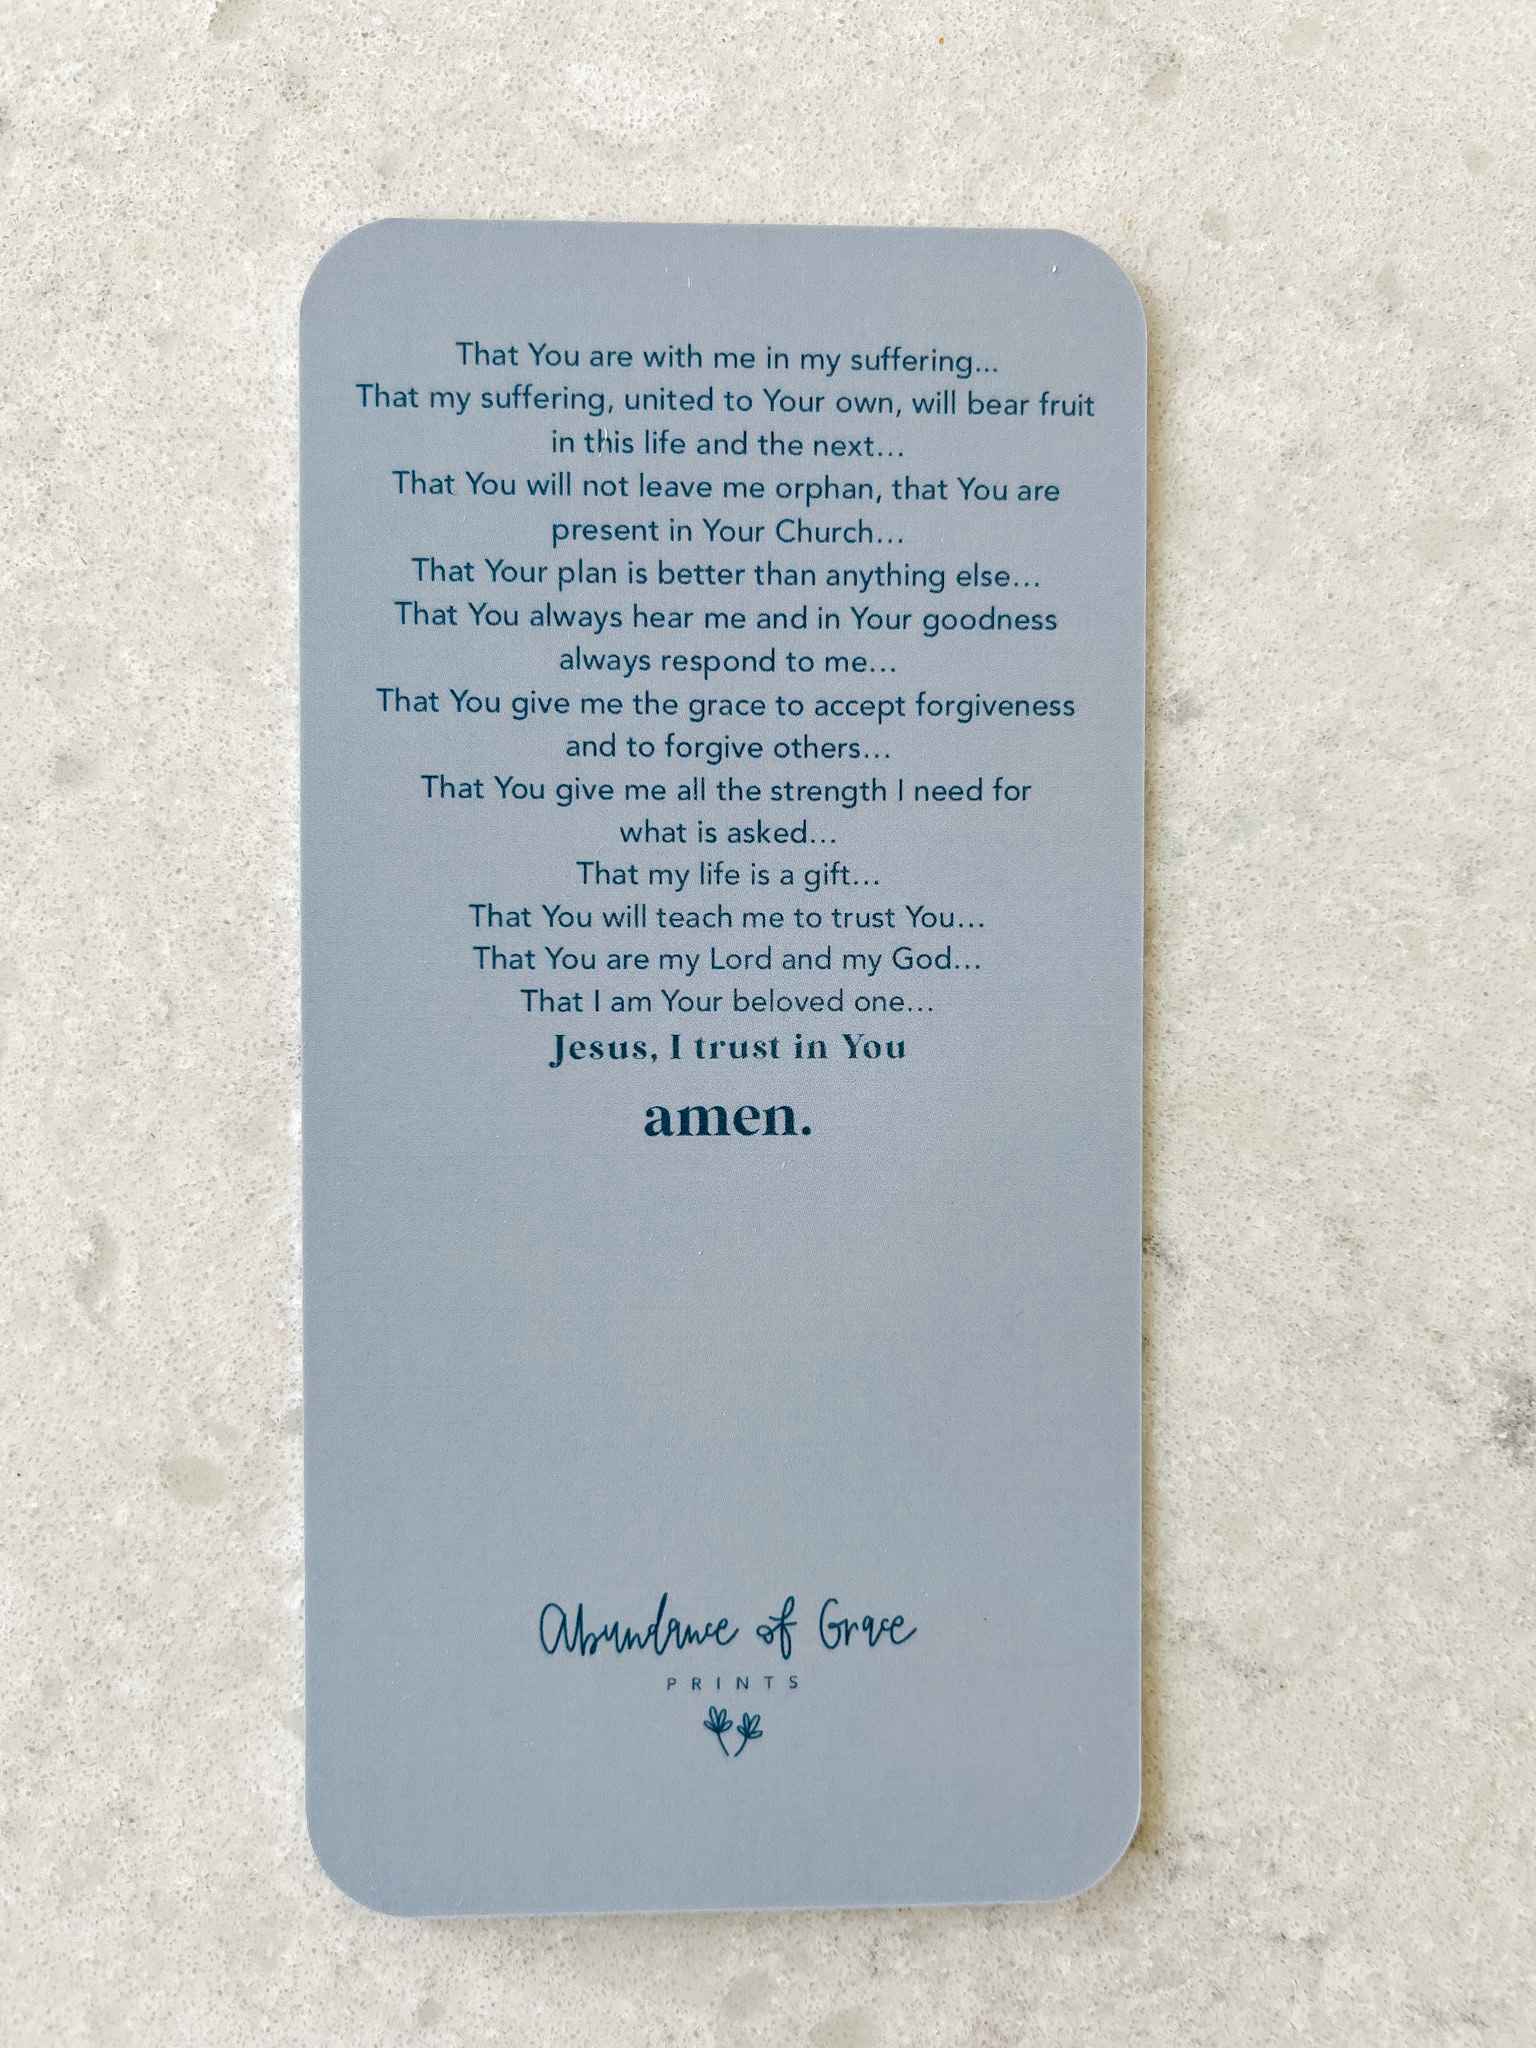 That You are with me in my suffering...
That my suffering, united to Your own, will bear fruit
in this life and the next...
That You will not leave me orphan, that You are
present in Your Church...
That Your plan is better than anything else...
That You always hear me and in Your goodness
always respond to me...
That You give me the grace to accept forgiveness
and to forgive others...
That You give me all the strength I need for
what is asked...
That my life is a gift...
That You will teach me to trust You...
That You are my Lord and my God...
That I am Your beloved one...
Jesus, I trust in You
amen.
Abundance of Grace
PRINTS